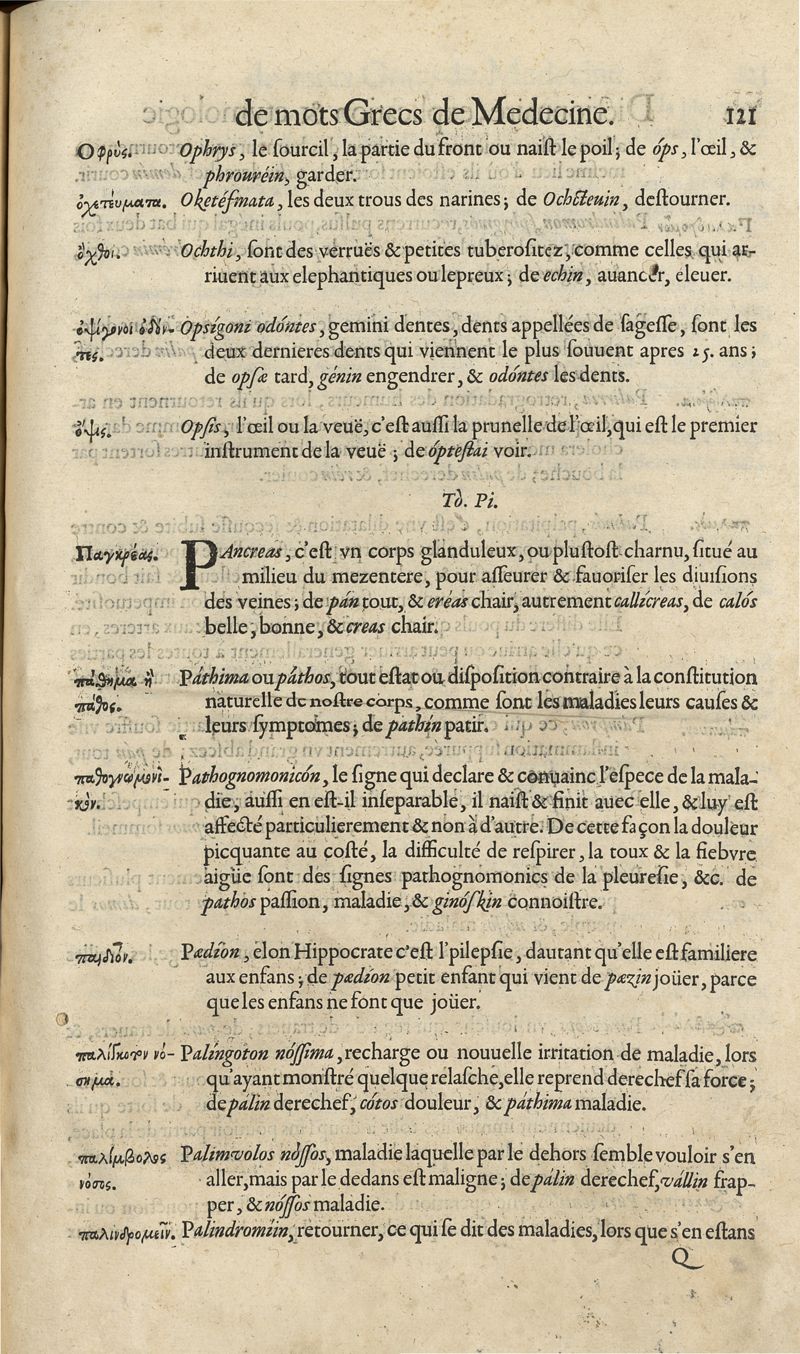 de mots Grecs de Medecine. 121
Οφρὺς. Ophrys, le ſourcil, la partie du front ou naiſt le poil; de óps, l'œil, &
phrouréin, garder.
ὀχετεύματα. Oketéfmata, les deux trous des narines; de Ochéteuin, deſtourner.
ὄχθοι. Ochthi, ſont des verruës & petites tuberoſitez, comme celles qui ar-
riuent aux elephantiques ou lepreux; de echin, auancer, eleuer.
ὀψίγονοι ὀδόν- Opsígoni odóntes, gemini dentes, dents appellées de ſageſſe, ſont les
τες. deux dernieres dents qui viennent le plus ſouuent apres 25. ans;
de opſæ tard, génin engendrer, & odóntes les dents.
ὄψις. Opſis, l'œil ou la veuë, c'eſt auſſi la prunelle de l'œil, qui eſt le premier
inſtrument de la veuë; de ópteſtai voir.
Tò. Pi.
Παγκρέας. PAncreas, c'eſt vn corps glanduleux, ou pluſtoſt charnu, ſitué au
milieu du mezentere, pour aſſeurer & fauoriſer les diuiſions
des veines; de pán tout, & eréas chair, autrement callícreas, de calós
belle, bonne, & creas chair.
πάθημα ἢ Páthima ou páthos, tout eſtat ou diſpoſition contraire à la conſtitution
πάθος. naturelle de noſtre corps, comme ſont les maladies leurs cauſes &
leurs ſymptomes; de pathín patir.
παθογνωμονι- Pathognomonicón, le ſigne qui declare & conuainc l'eſpece de la mala-
κόν. die, auſſi en eſt-il inſeparable, il naiſt & finit auec elle, & luy eſt
affecté particulierement & non à d'autre. De cette façon la douleur
picquante au coſté, la difficulté de reſpirer, la toux & la fiebvre
aigüe ſont des ſignes pathognomonics de la pleureſie, &c. de
pathos paſſion, maladie, & ginóſkin connoiſtre.
παιδίον. Pædíon, elon Hippocrate c'eſt l'pilepſie, dautant qu'elle eſt familiere
aux enfans; de pædíon petit enfant qui vient de pæzin joüer, parce
que les enfans ne font que joüer.
παλίγκοτον νό- Palíngoton nóſſima, recharge ou nouuelle irritation de maladie, lors
σημα. qu'ayant monſtré quelque relaſche, elle reprend derechef ſa force;
de pálin derechef, cótos douleur, & páthima maladie.
παλίμβολος Palimvolos nòſſos, maladie laquelle par le dehors ſemble vouloir s'en
νόσος. aller, mais par le dedans eſt maligne; de pálin derechef, vállin frap-
per, & nóſſos maladie.
παλινδρομεῖν. Palindromiin, retourner, ce qui ſe dit des maladies, lors que s'en eſtans
Q